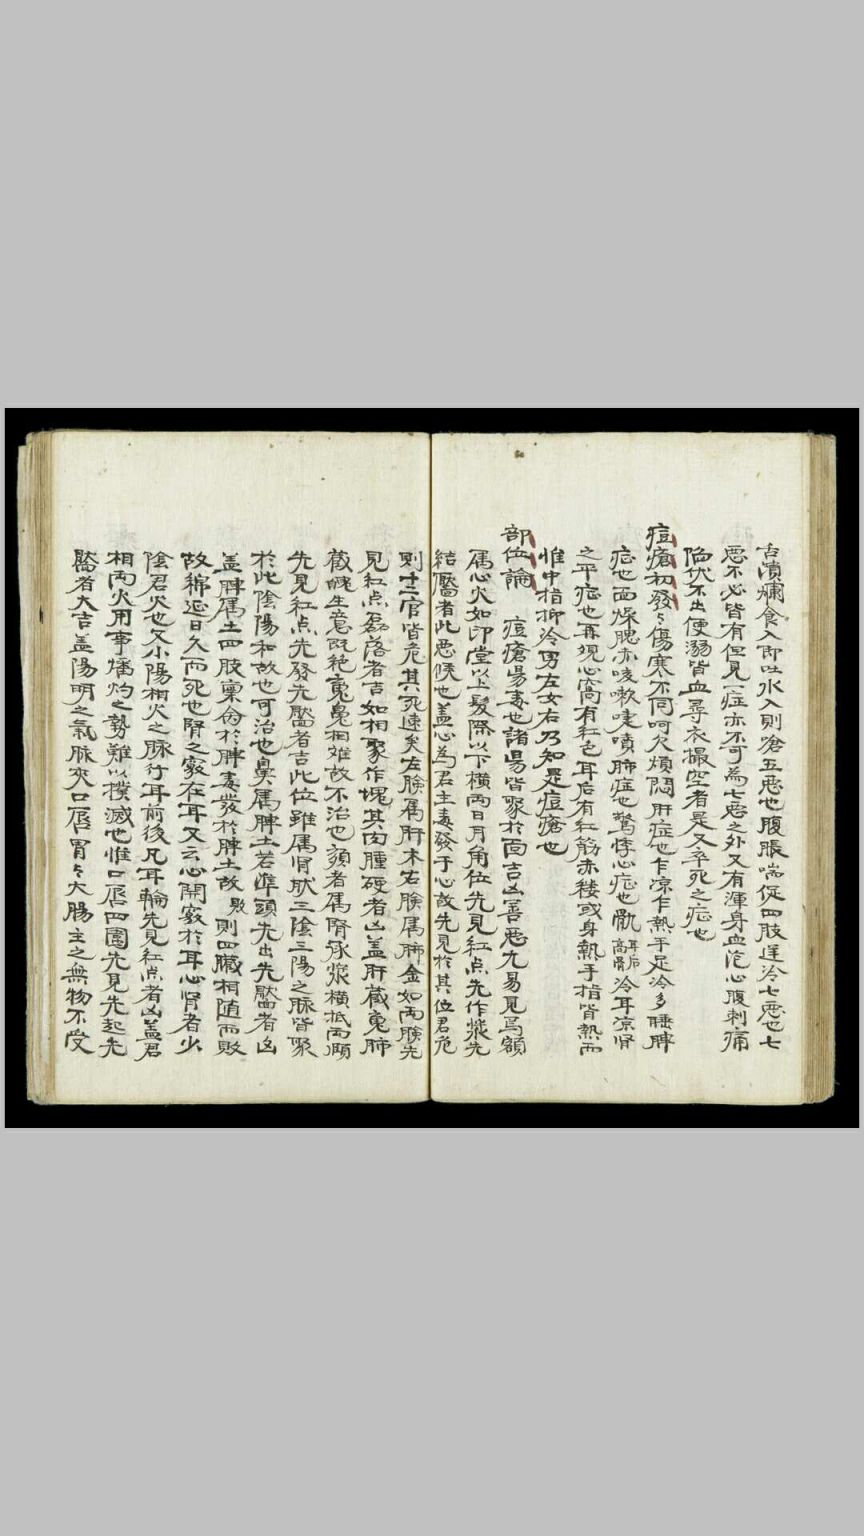 舌潰爛食入即吐水入則嗆五惡也腹脹喘促四肢逆冷七惡也七
惡不必皆有但見一症亦不可為七惡之外又有渾身血泡心腹刺痛
陷伏不出便溺皆血尋衣撮空者是又卒死之症也
痘瘡初發〻傷寒不同呵欠煩悶肝症也乍凉乍熱手足冷多睡脾
症也面燥腮赤咳嗽嚏噴肺症也驚悸心症也骩耳后高骨冷耳凉肾
之平症也再現心窩有紅色耳后有紅筋赤縷或身熱手指皆熱而
惟中指抑冷男左女右乃知是痘瘡也
部位論 痘瘡陽毒也諸陽皆聚於面吉凶善惡尢易見焉額
属心火如印堂以上髮際以下横两日月角位先見紅点先作漿先
結靨者此惡候也盖心為君主毒發于心故先見於其位君危
則十二官皆危其死速矣左臉属肝木右臉属肺金如两臉先
見紅点磊落者吉如相聚作塊其肉腫硬者凶盖肝藏䰟肺
藏魄生意既絶䰟鬼相难故不治也頦者属腎承漿横抵两頤
先見紅点先發先靨者吉此位雖属肾肰三陰三陽之脉皆聚
於此陰陽和故也可治也鼻属脾土若準頭先出先靨者凶
盖脾属土四肢稟命於脾毒發於脾土故敗則四臟相随而敗
故綿延日久而死也腎之竅在耳又云心開竅於耳心肾者少
陰君火也又小陽相火之脉行耳前後凡耳輪先見紅点者凶盖君
相两火用事燔灼之勢難以撲滅也惟口唇四圍先見先起先
靨者大吉盖陽明之氣脉夾口唇胃〻大腸主之無物不受